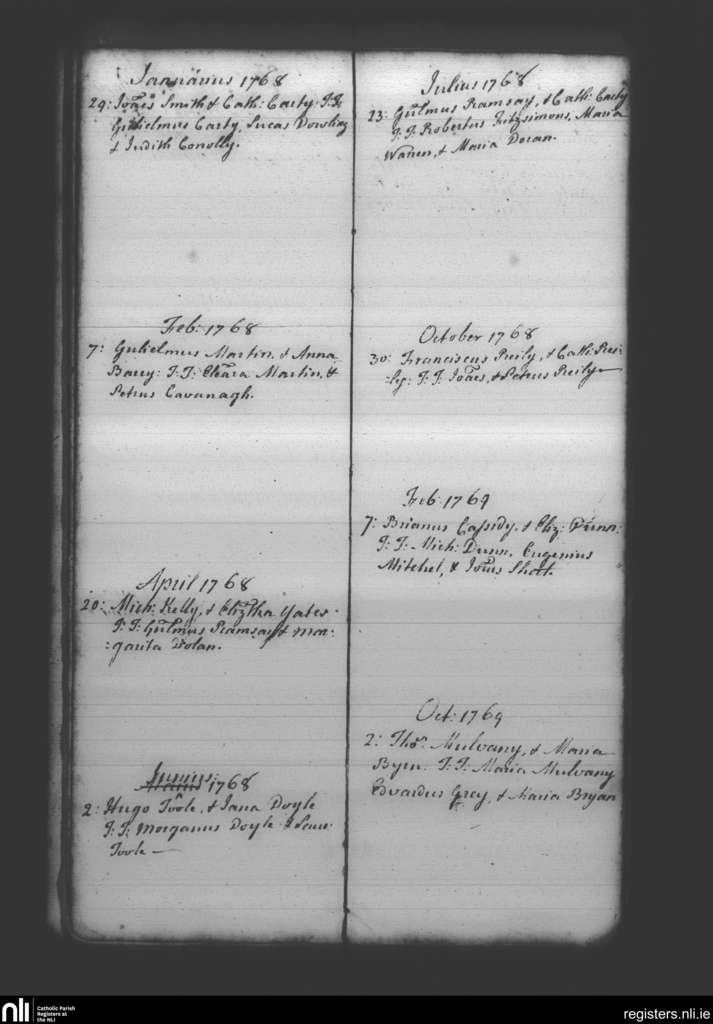 Januarius 1768
29: Joães Smith & Cath: Carty: T:T:
Gulielmus Carty, Lucas Dowling
& Judith Conolly.
Feb: 1768
7: Gulielmus Martin, & Anna
Barry: T:T: Martin, &
Petrus Cavanagh.
April 1768
20: Mich: Kelly, & Elizтha Yates
T:T: Gulmus Ramsay & Mar-
:garita Dolan.
Junius: 1768
2: Hugo Toole, & Jana Doyle
T:T: Morganus Doyle &
Toole —
Julius 1768
23: Gulmus Ramsay, & Cath: Carty
T:T: Robertus Fitzsimons, Maria
Warren, & Maria Doran.
October 1768
30: Franciscus Reily, & Cath: Rei-
:ly: T:T: Joães, & Petrus Reily —
Feb: 1769
7: Brianus Cassidy, & Eliz: Dunn:
T:T: Mich: Dunn, Eugenius
Mitchel, & Joães Short.
Oct: 1769
2: Thos. Mulvany, & Maria
Byrn: T:T: Maria Mulvany
Edvardus Grey, & Maria Bryan
nli
Catholic Parish
Registers at
the NLI
registers.nli.ie